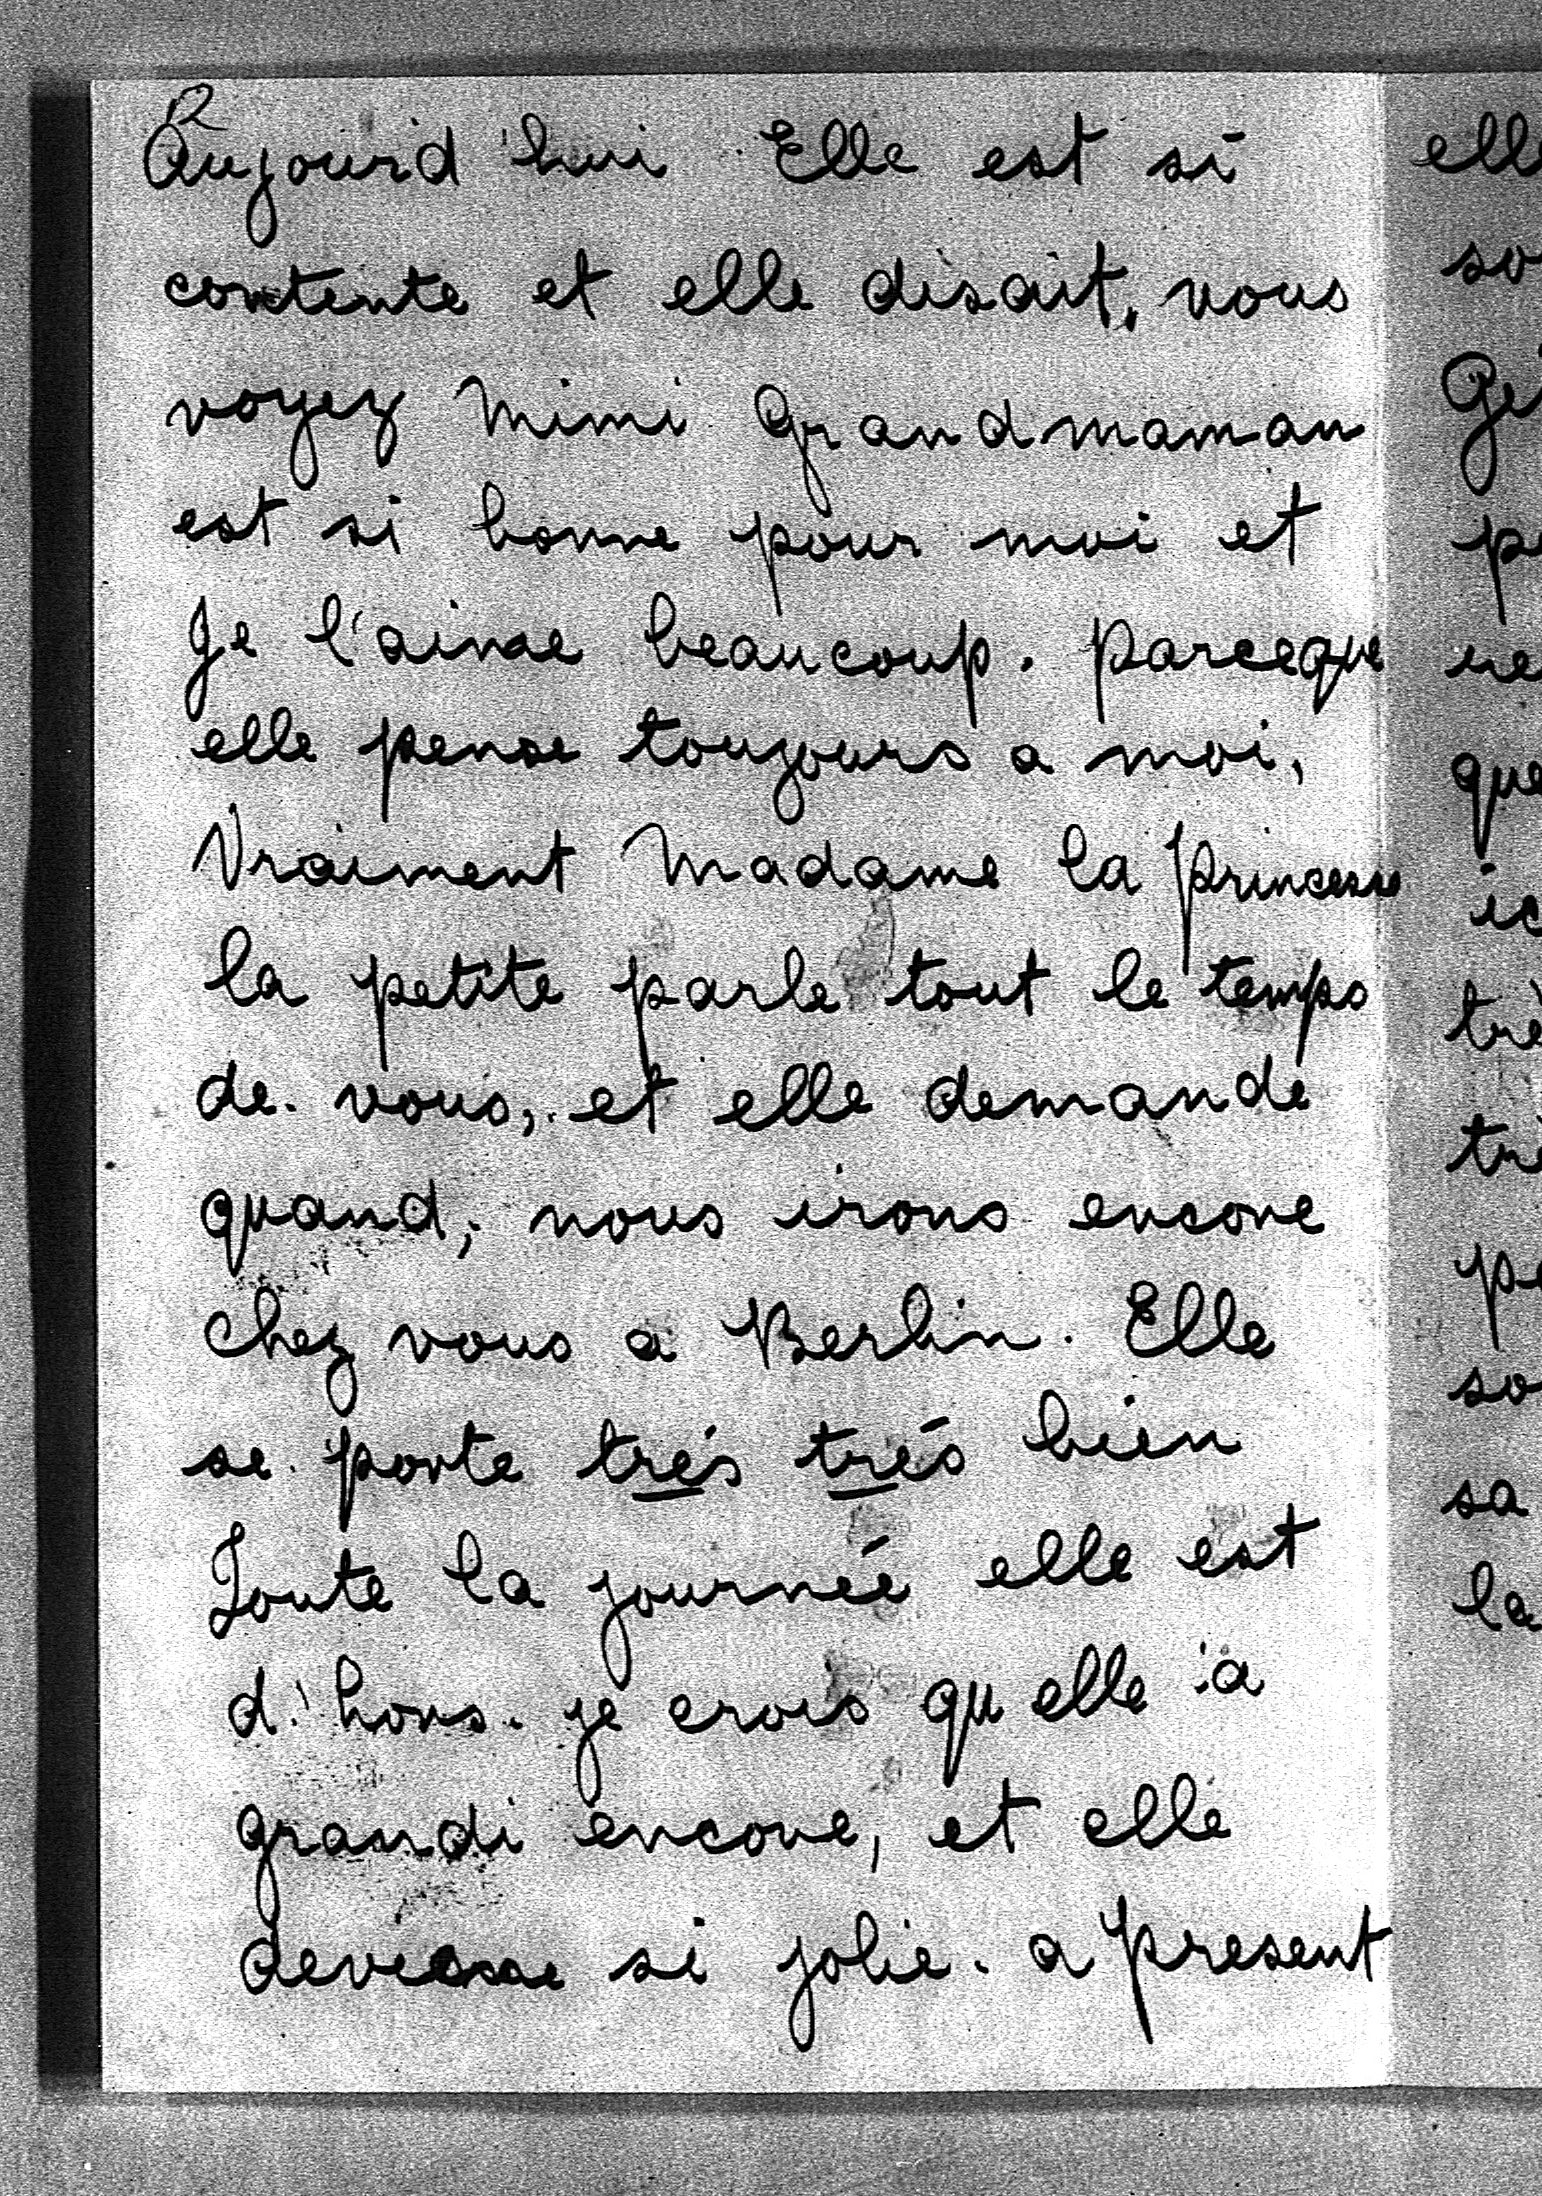 Aujourd'hui Elle est si
contente et elle disait, vous
voyez Mimi Grandmaman
est si bonne pour moi et
Je l'aime beaucoup. parceque
elle pense toujours a moi,
Vraiment Madame la princesse
la petite parle tout le temps
de vous, et elle demande
quand, nous irons encore
chez vous a Berlin. Elle
se porte trés trés bien
Toute la journée elle est
d'hors. je crois qu elle a
grandi encore, et elle
si jolie. a present
elle
so
pe
ne
que
ic
trè
trè
pe
so
sa
la